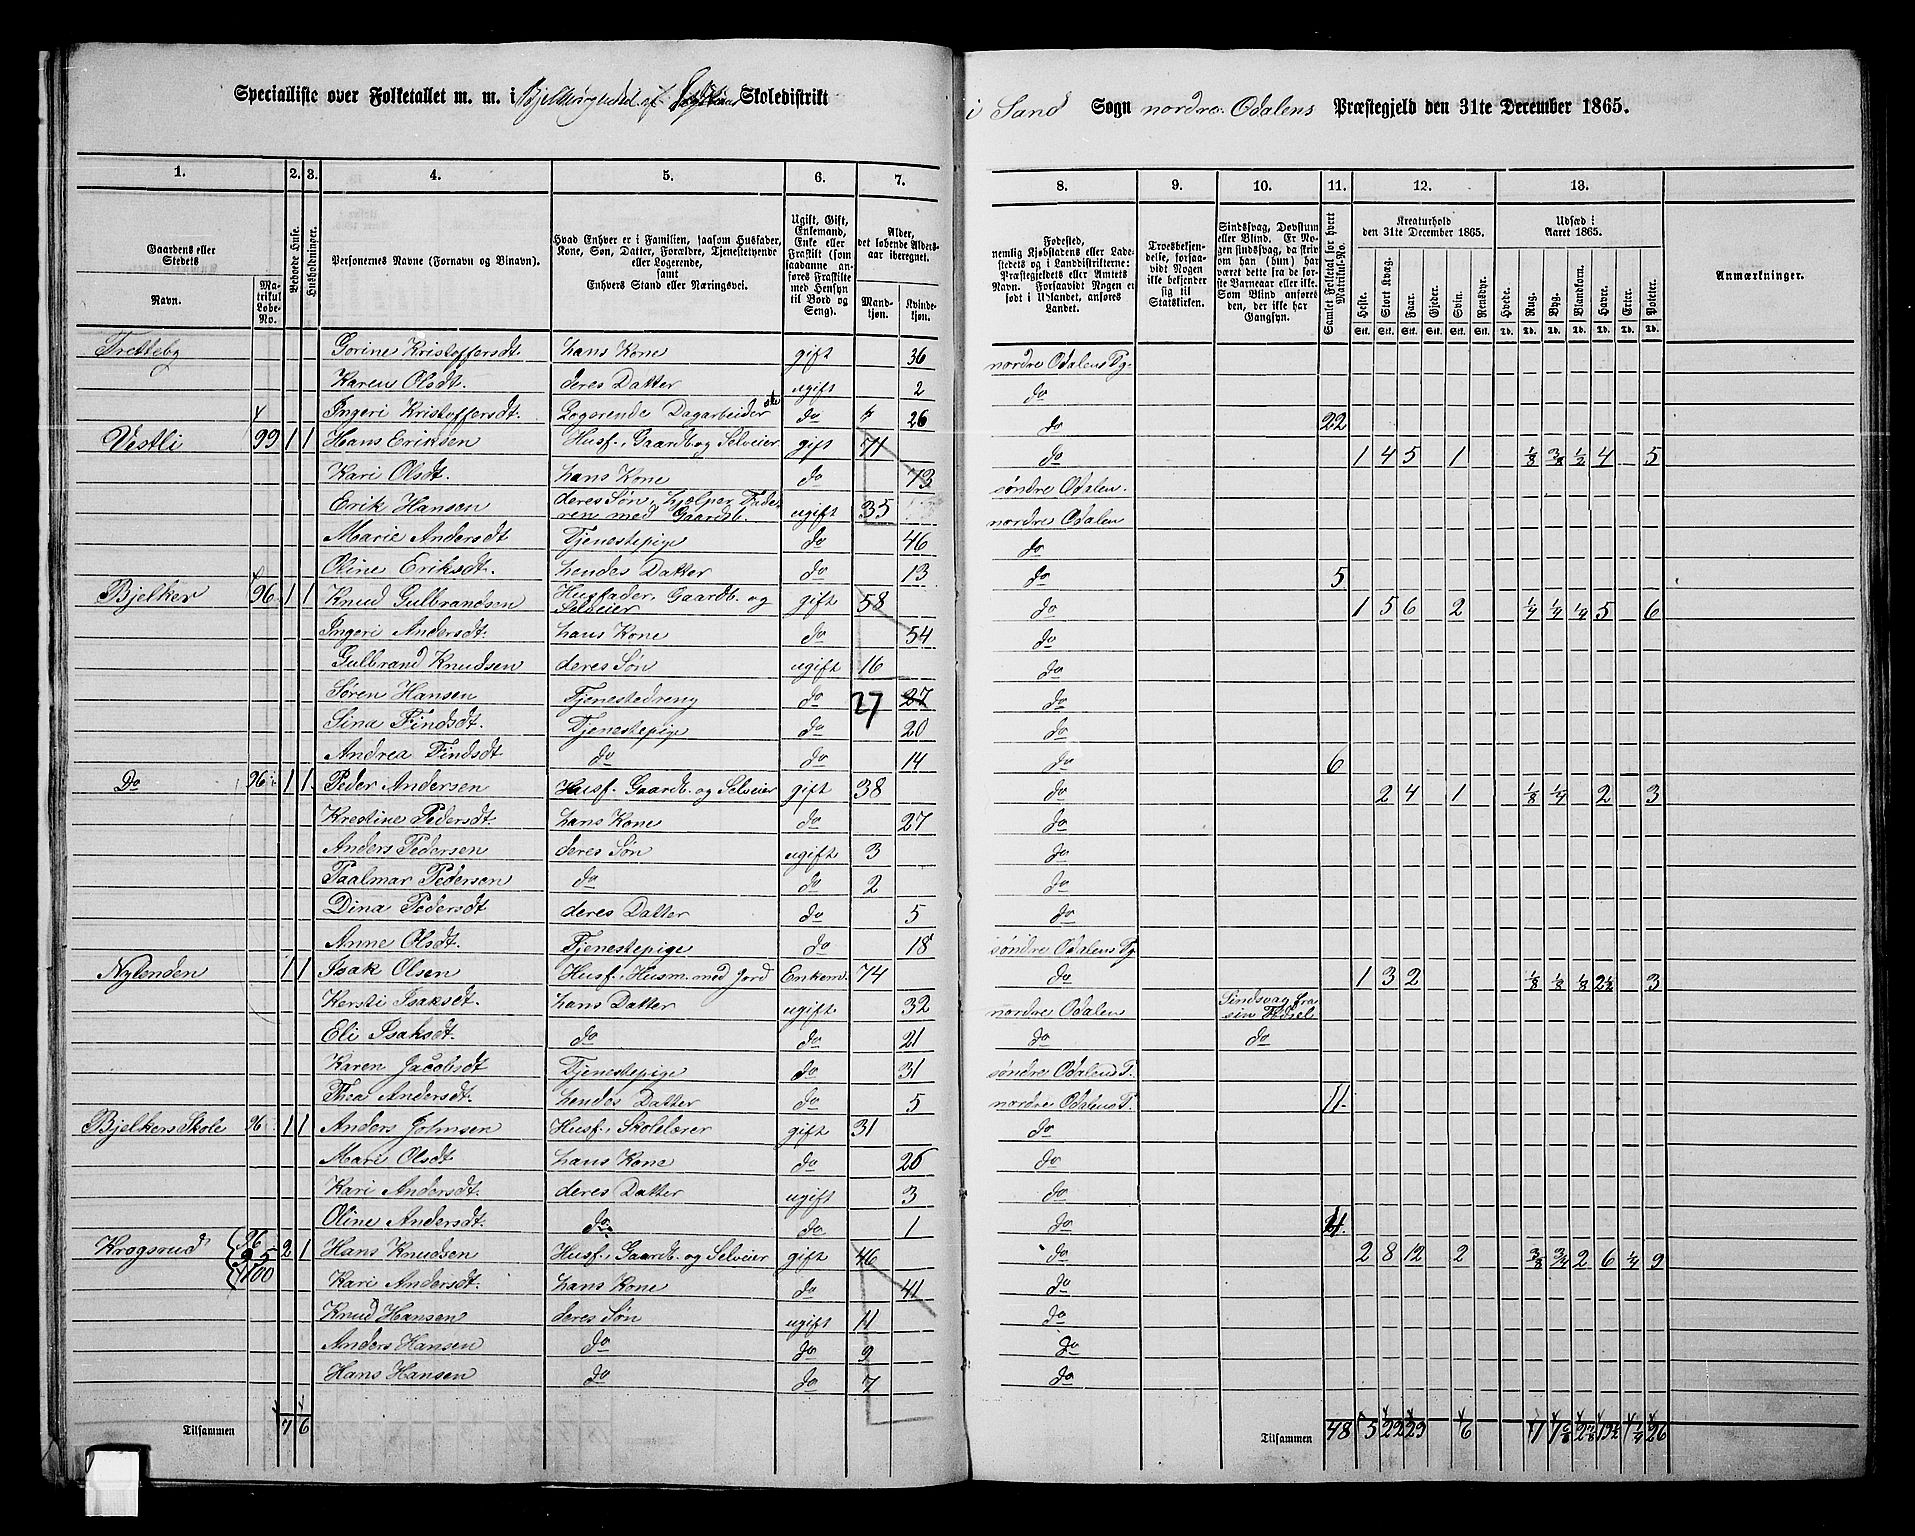 Specialliste over Folketallet m. m. i Skoledistrikt
i Sand Sogn nordre Odalens Præstegjeld den 31te December 1865.
1. 2. 3. 4. 5. 6. 7. 8. 9. 10. 11. 12. 13.
Gaardens eller Stedets
Navn.
Matrikul Løbe-No.
Beboede Huse.
Husholdninger.
Personernes Navne (Fornavn og Binavn).
Hvad Enhver er i Familien, saasom Husfader, Kone, Søn, Datter, Forældre, Tjenestetyende eller Logerende, samt Enhvers Stand eller Næringsvei.
Ugift, Gift, Enkemand, Enke eller Fraskilt (som saadanne anføres Fraskilte med Hensyn til Bord og Seng).
Alder, det løbende Alders-aar iberegnet.
Mand-kjøn.
Kvinde-kjøn.
Fødested, nemlig Kjøbstadens eller Ladestedets og i Landdistrikterne: Præstegjeldets eller Amtets Navn. Forsaavidt Nogen er født i Udlandet, anføres Landet.
Troesbekjendelse, forsaavidt Nogen ikke bekjender sig til Statskirken.
Sindssvag, Døvstum eller Blind. Er Nogen sindssvag, da skrives om han (hun) har været dette fra de første Barneaar eller ikke. Som Blind anføres den, der ikke har Gangsyn.
Samlet Folketal for hvert Matrikul-No.
Kreaturhold den 31te December 1865.
Heste. Stort Kvæg. Faar. Gjeder. Svin. Rensdyr.
Stk. Stk. Stk. Stk. Stk. Stk.
Udsæd i Aaret 1865.
Hvede. Rug. Byg. Blandkorn. Havre. Erter. Poteter.
Td. Td. Td. Td. Td. Td. Td.
Anmærkninger.
Tretteby Gorine Kristoffersdt. hans Kone gift 36 nordre Odalens Pg.
Karen Olsdt. deres Datter ugift 2 do
Ingeri Kristoffersdt. Logerende Dagarbeider do 26 do 22
Vestli 99 1 1 Hans Eriksen Husf., Gaardb. og Selveier gift 71 do 1 4 5 1 1/8 3/8 1/2 4 5
Kari Olsdt. hans Kone do 73 søndre Odalen.
Erik Hansen deres Søn, hjelper Faderen med Gaardb. ugift 35 nordre Odalen
Marie Andersdt Tjenestepige do 46 do
Oline Eriksdt. hendes Datter do 13 do 5
Bjelker 96 1 1 Knud Gulbrandsen Husfader, Gaardb. og Selveier gift 58 do 1 5 6 2 1/4 1/4 1/4 5 6
Ingeri Andersdt. hans Kone do 54 do
Gulbrand Knudsen deres Søn ugift 16 do
Søren Hansen Tjenestedreng do 27 27 do
Sina Findsdt. Tjenestepige do 20 do
Andrea Findsdt do do 14 do 6
Do 96 1 1 Peder Andersen Husf. Gaardb. og Selveier gift 38 do 2 4 1 1/8 1/4 2 3
Krestine Pedersdt. hans Kone do 27 do
Anders Pedersen deres Søn ugift 3 do
Paalmar Pedersen do do 2 do
Dina Pedersdt deres Datter do 5 do
Anne Olsdt. Tjenestepige do 18 søndre Odalens Pg
Nylenden 1 1 Isak Olsen Husf., Husm. med Jord Enkem. 74 do 1 3 2 1/8 1/8 1/8 2 1/2 3
Kersti Isaksdt. hans Datter ugift 32 nordre Odalen Sindsvag fra sin Fødsel
Eli Isaksdt. do do 21 do do
Karen Jacobsdt Tjenestepige do 31 søndre Odalens P.
Thea Andersdt. hendes Datter do 5 nordre Odalens P. 11.
Bjelkers Skole 96 1 1 Anders Johnsen Husf., Skolelærer gift 31 do
Mari Olsdt hans Kone do 26 do
Kari Andersdt. deres Datter ugift 3 do
Oline Andersdt. do do 1 do 4
Krogsrud 96 95 100 2 1 Hans Knudsen Husf., Gaardb. og Selveier gift 46 do 2 8 12 2 3/8 3/4 2 6 1/4 9
Kari Andersdt. hans Kone do 41 do
Knud Hansen deres Søn ugift 11 do
Anders Hansen do do 9 do
Hans Hansen do do 7 do
Tilsammen 7 6 Tilsammen 48 5 22 29 6 26